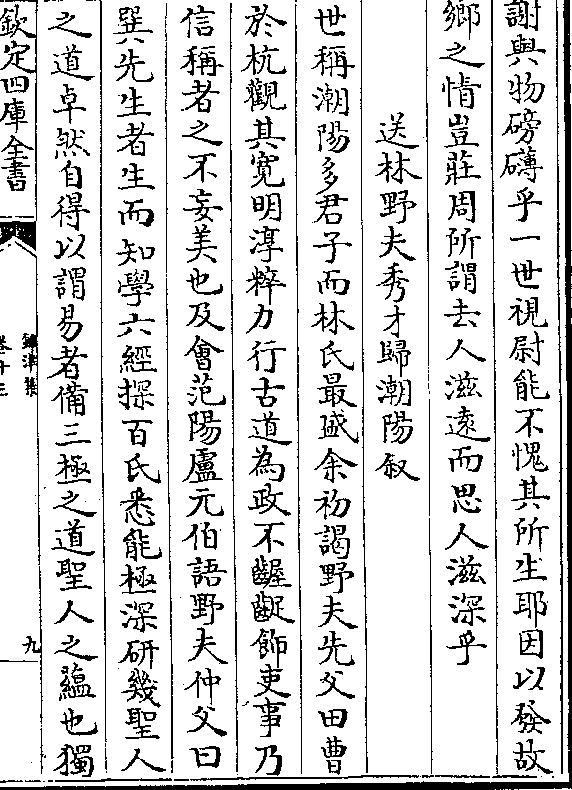 謝與物磅礴乎一世視尉能不愧其所生耶因以發故
鄉之情豈莊周所謂去人滋遠而思人滋深乎
送林野夫秀才歸潮陽叙
世稱潮陽多君子而林氏最盛余初謁野夫先父田曹
於杭觀其寛明淳粹力行古道為政不齷齪飾吏事乃
信稱者之不妄美也及會范陽盧元伯語野夫仲父曰
巽先生者生而知學六經探百氏悉能極深研幾聖人
之道卓然自得以謂易者備三極之道聖人之蘊也獨
欽定四庫全書
鐔津集
卷十三
九